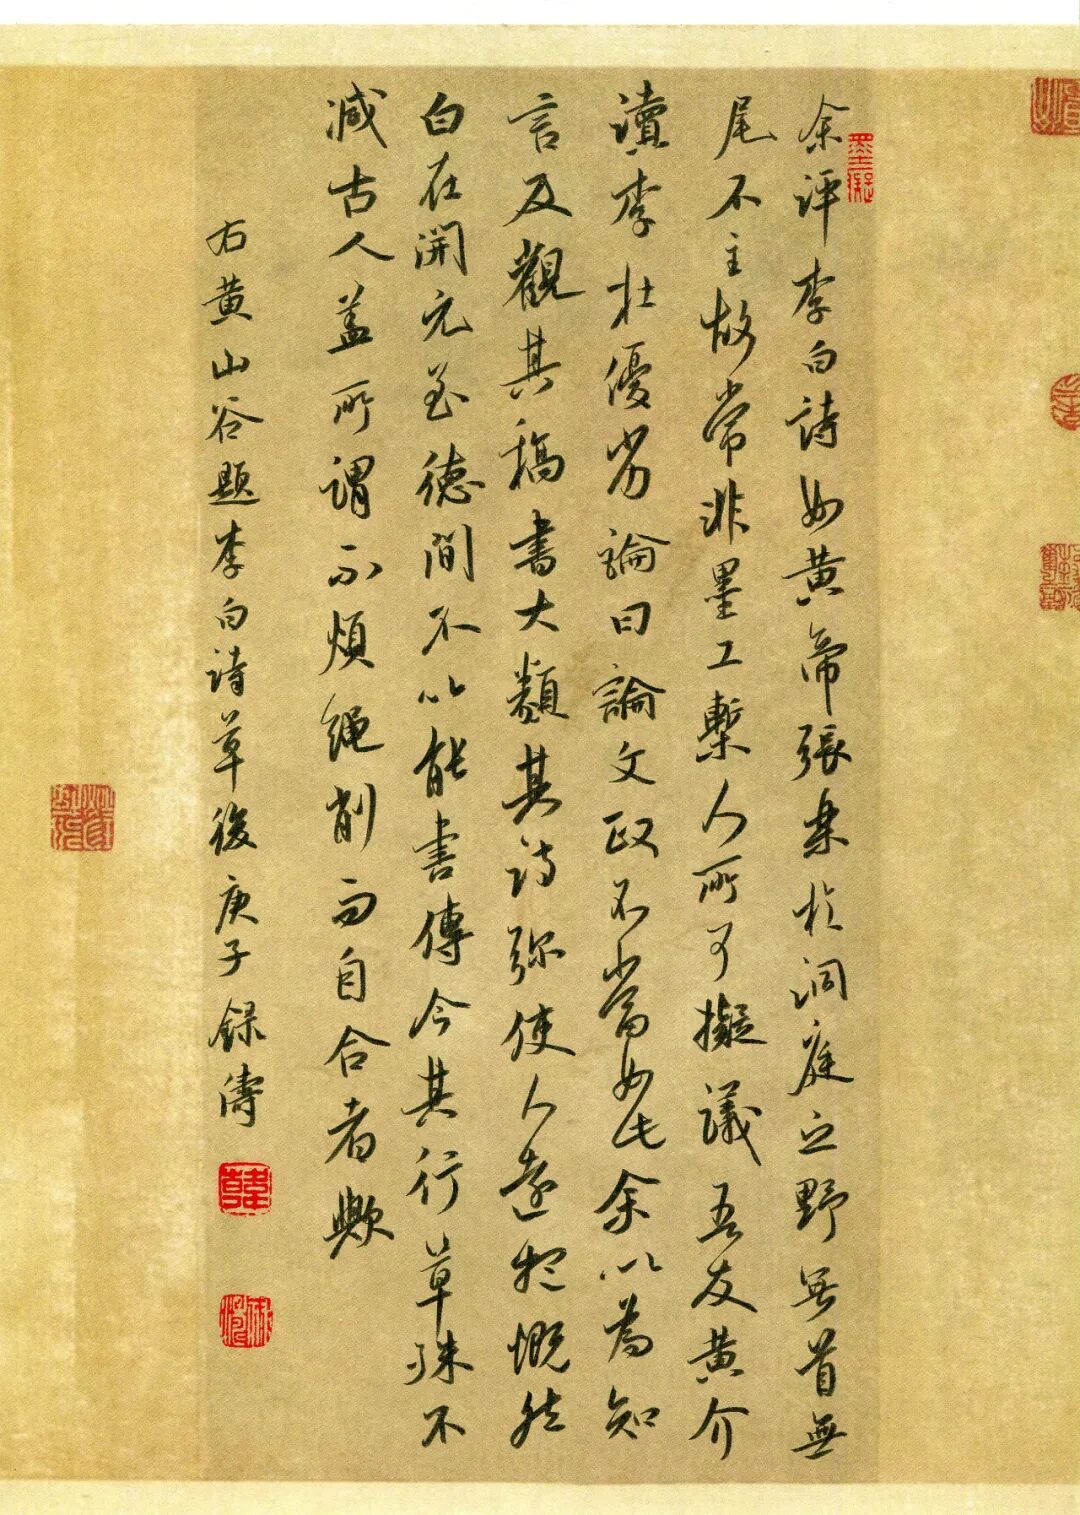 余评李白詩如黄帝張樂於洞庭之野無首無
尾不主故常非墨工槧人所可擬議吾友黄介
讀李杜優劣論曰論文政不當如此余以為知
言及觀其稿書大類其詩弥使人遠想慨然
白在開元至德間不以能書傳今其行草殊不
减古人盖所謂不煩繩削而自合者歟
右黄山谷題李白詩草後庚子録濤
墨凝
韓